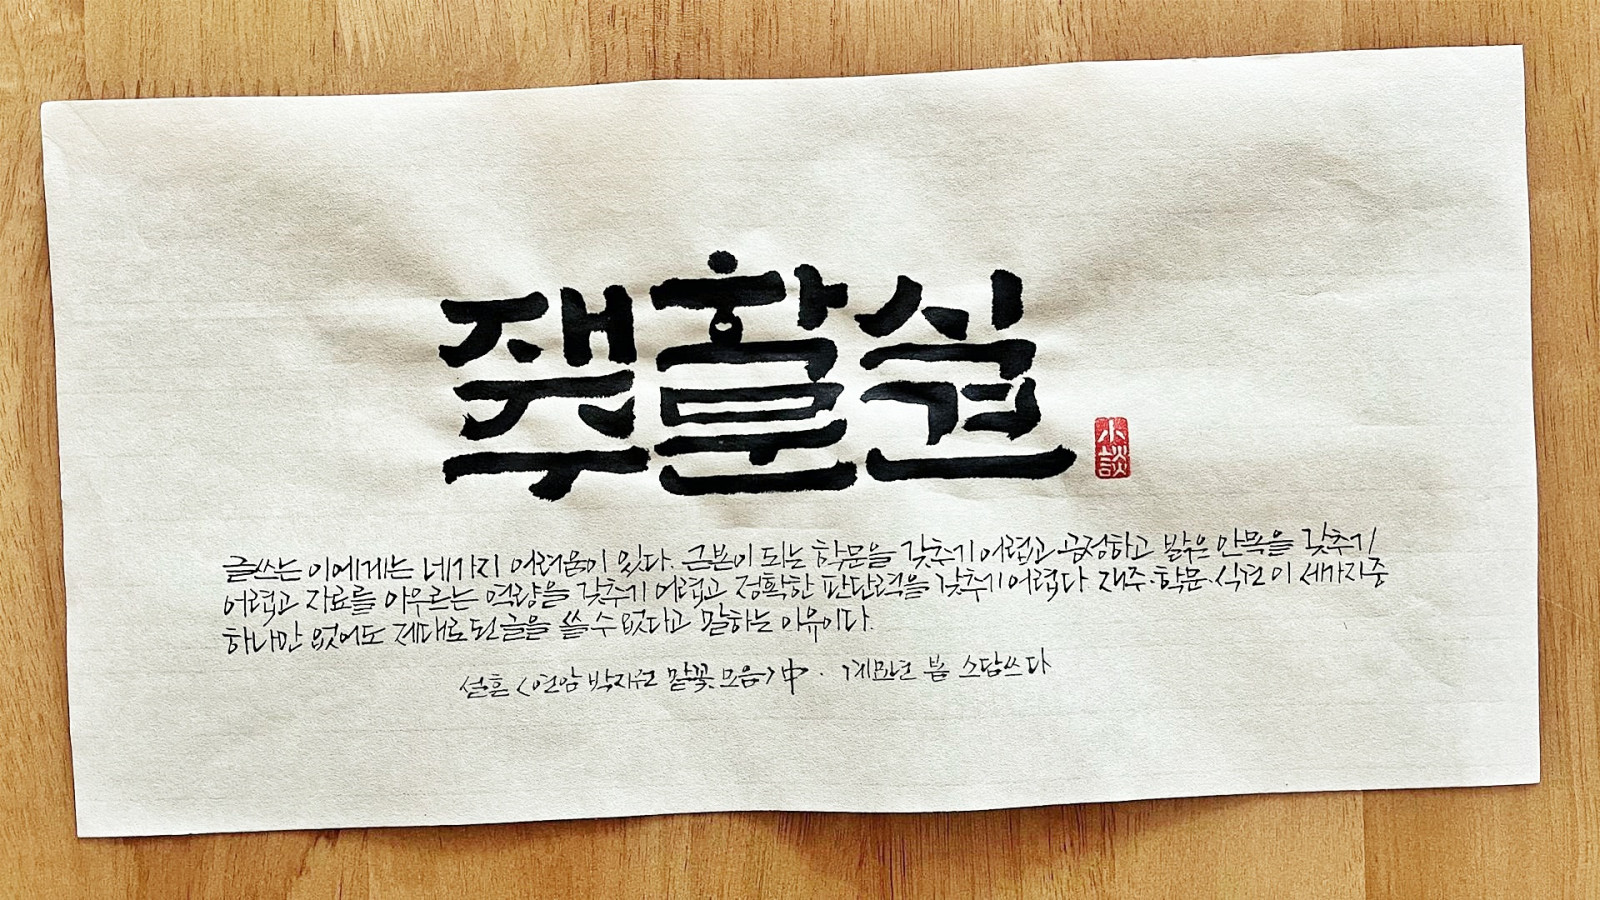 재주 학문 식견
小談
글쓰는 이에게는 네가지 어려움이 있다. 근본이 되는 학문을 갖추기 어렵고 공정하고 밝은 안목을 갖추기
어렵고 자료를 아우르는 역량을 갖추기 어렵고 정확한 판단력을 갖추기 어렵다 재주·학문·식견 이 세가지중
하나만 없어도 제대로 된 글을 쓸 수 없다고 말하는 이유이다.
설흔 <연암 박지원 말꽃 모음> 中 · 계묘년 봄 소담쓰다